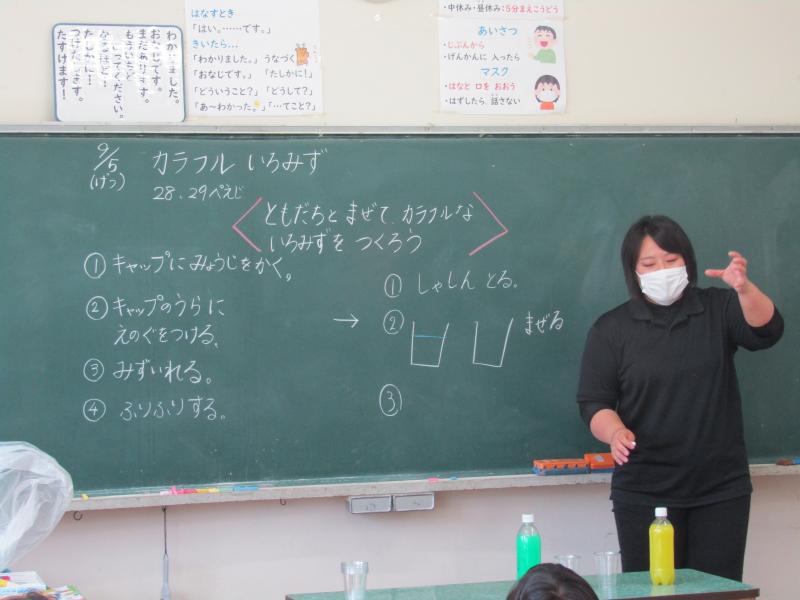 わかりました。
おなじです。
まだあります。
もういちど
いってください。
なるほど!
たしかに!
つけたします。
たすけます!
はなすとき
「はい。……です。」
きいたら…
「わかりました。」 うなづく
「おなじです。」 「たしかに!」
「どういうこと?」 「どうして?」
「あ～わかった。」 「…てこと?」
・中休み・昼休み:5分まえこうどう
あいさつ
・じぶんから
・げんかんに 入ったら
マスク
・はなと 口を おおう
・はずしたら、話さない
9/5 カラフル いろみず
(げつ) 28、29ぺえじ
ともだちと まぜて、カラフルな
いろみずを つくろう
① キャップに みょうじを かく。
② キャップの うらに
えのぐを つける。
③ みずいれる。
④ ふりふりする。
→
① しゃしん とる。
② まぜる
③